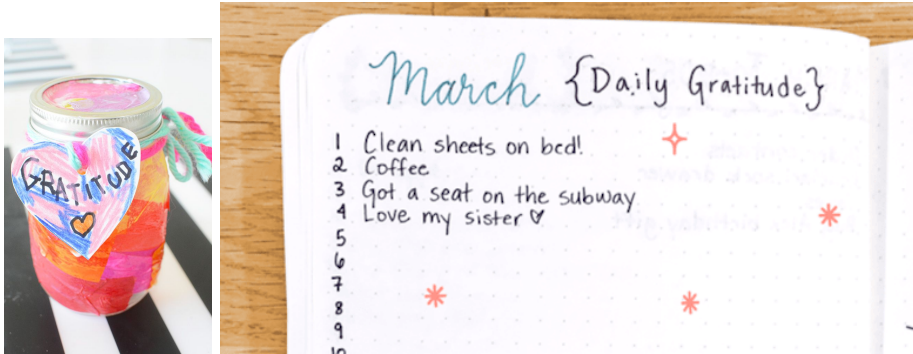 GRATITUDE
March {Daily Gratitude}
1 Clean sheets on bed!
2 Coffee
3 Got a seat on the subway
4 Love my sister ♡
5
6
7
8
9
10